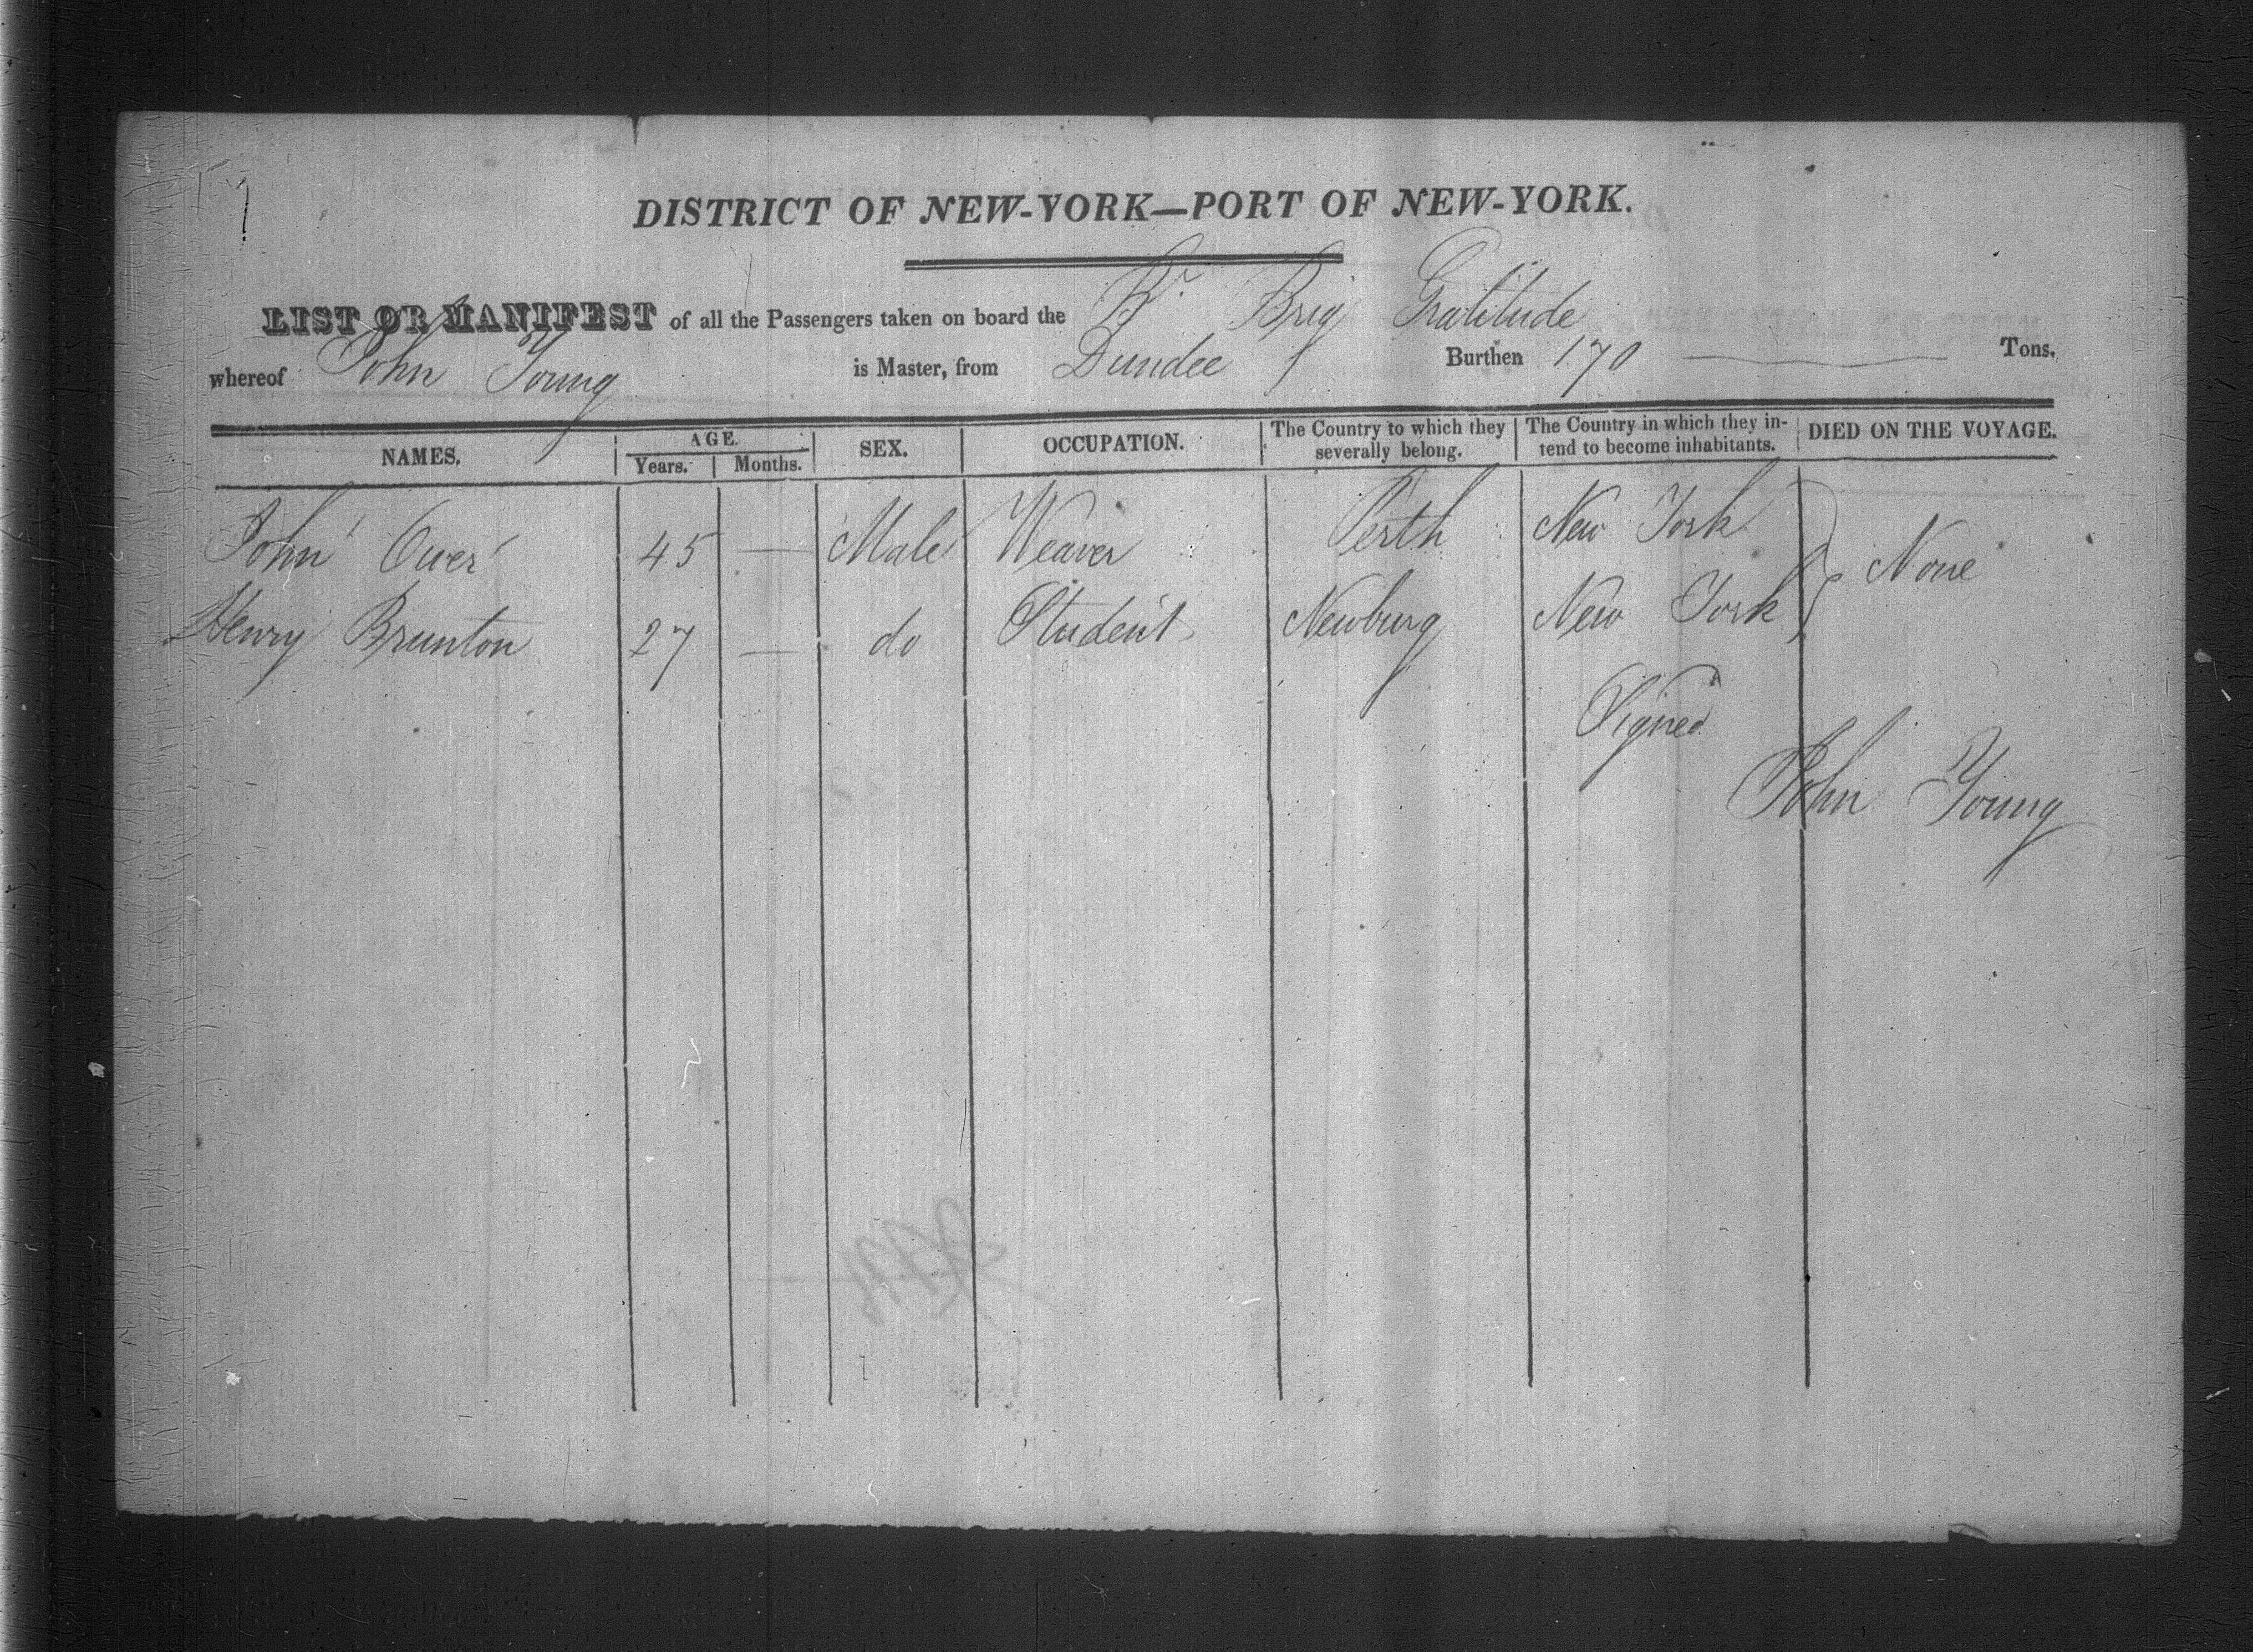 DISTRICT OF NEW-YORK—PORT OF NEW-YORK.
LIST OR MANIFEST of all the Passengers taken on board the Br. Brig Gratitude
whereof John Young is Master, from Dundee Burthen 170 Tons.
NAMES. AGE. Years. Months. SEX. OCCUPATION. The Country to which they severally belong. The Country in which they intend to become inhabitants. DIED ON THE VOYAGE.
John Ower 45 — Male Weaver Perth New York None
Henry Brunton 27 — do Student Newburg New York
Signed
John Young